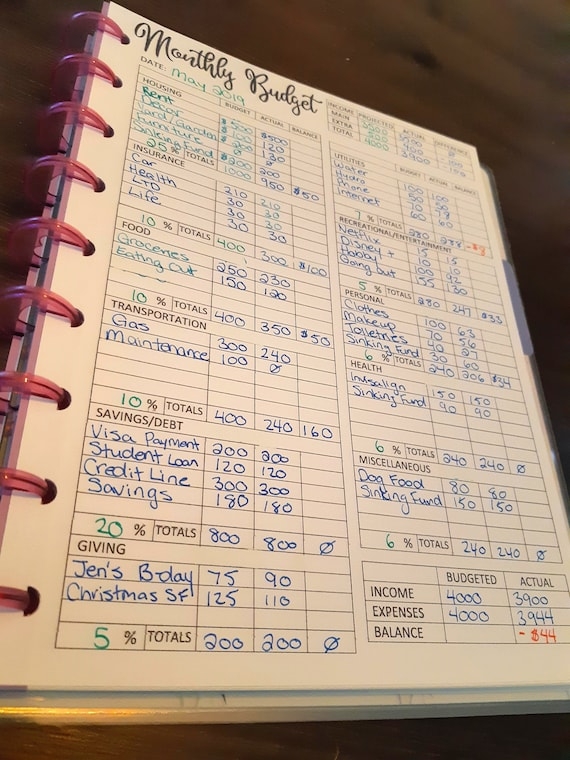 Monthly Budget
DATE: May 2019
HOUSING BUDGET ACTUAL BALANCE
Rent $500 $500
Decor 120
Yard/Garden 130
Furniture
Sinking Fund $200 200
25 % TOTALS 1000 950 $50
INSURANCE
Car 210 210
Health 30 30
LTD 30 30
Life 30 30
10 % TOTALS 400 300 $100
FOOD
Groceries 250 230
Eating Out 150 120
10 % TOTALS 400 350 $50
TRANSPORTATION
Gas 300 240
Maintenance 100 Ø
10 % TOTALS 400 240 160
SAVINGS/DEBT
Visa Payment 200 200
Student Loan 120 120
Credit Line 300 300
Savings 180 180
20 % TOTALS 800 800 Ø
GIVING
Jen's B-day 75 90
Christmas SF 125 110
5 % TOTALS 200 200 Ø
INCOME PROJECTED ACTUAL DIFFERENCE
MAIN
EXTRA
TOTAL 4000 3900
UTILITIES BUDGET ACTUAL BALANCE
Water 100 100
Hydro
Phone
Internet 60 60
% TOTALS 280
RECREATIONAL/ENTERTAINMENT
Netflix 15 15
Disney + 15
Hobby 100 92
Going Out 130
5 % TOTALS 280 247 $33
PERSONAL
Clothes 100 63
Makeup 70 56
Toiletries 27
Sinking Fund 60
6 % TOTALS 240 206 $34
HEALTH
Invisalign 150 150
Sinking Fund 90 90
6 % TOTALS 240 240 Ø
MISCELLANEOUS
Dog Food 80 80
Sinking Fund 150 150
6 % TOTALS 240 240 Ø
BUDGETED ACTUAL
INCOME 4000 3900
EXPENSES 4000 3944
BALANCE - $44